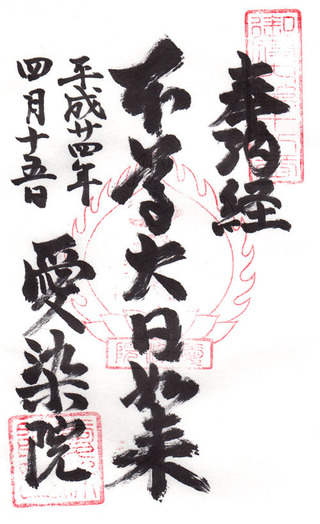 奉納経
本尊大日如来
平成廿四年
四月十五日
愛染院